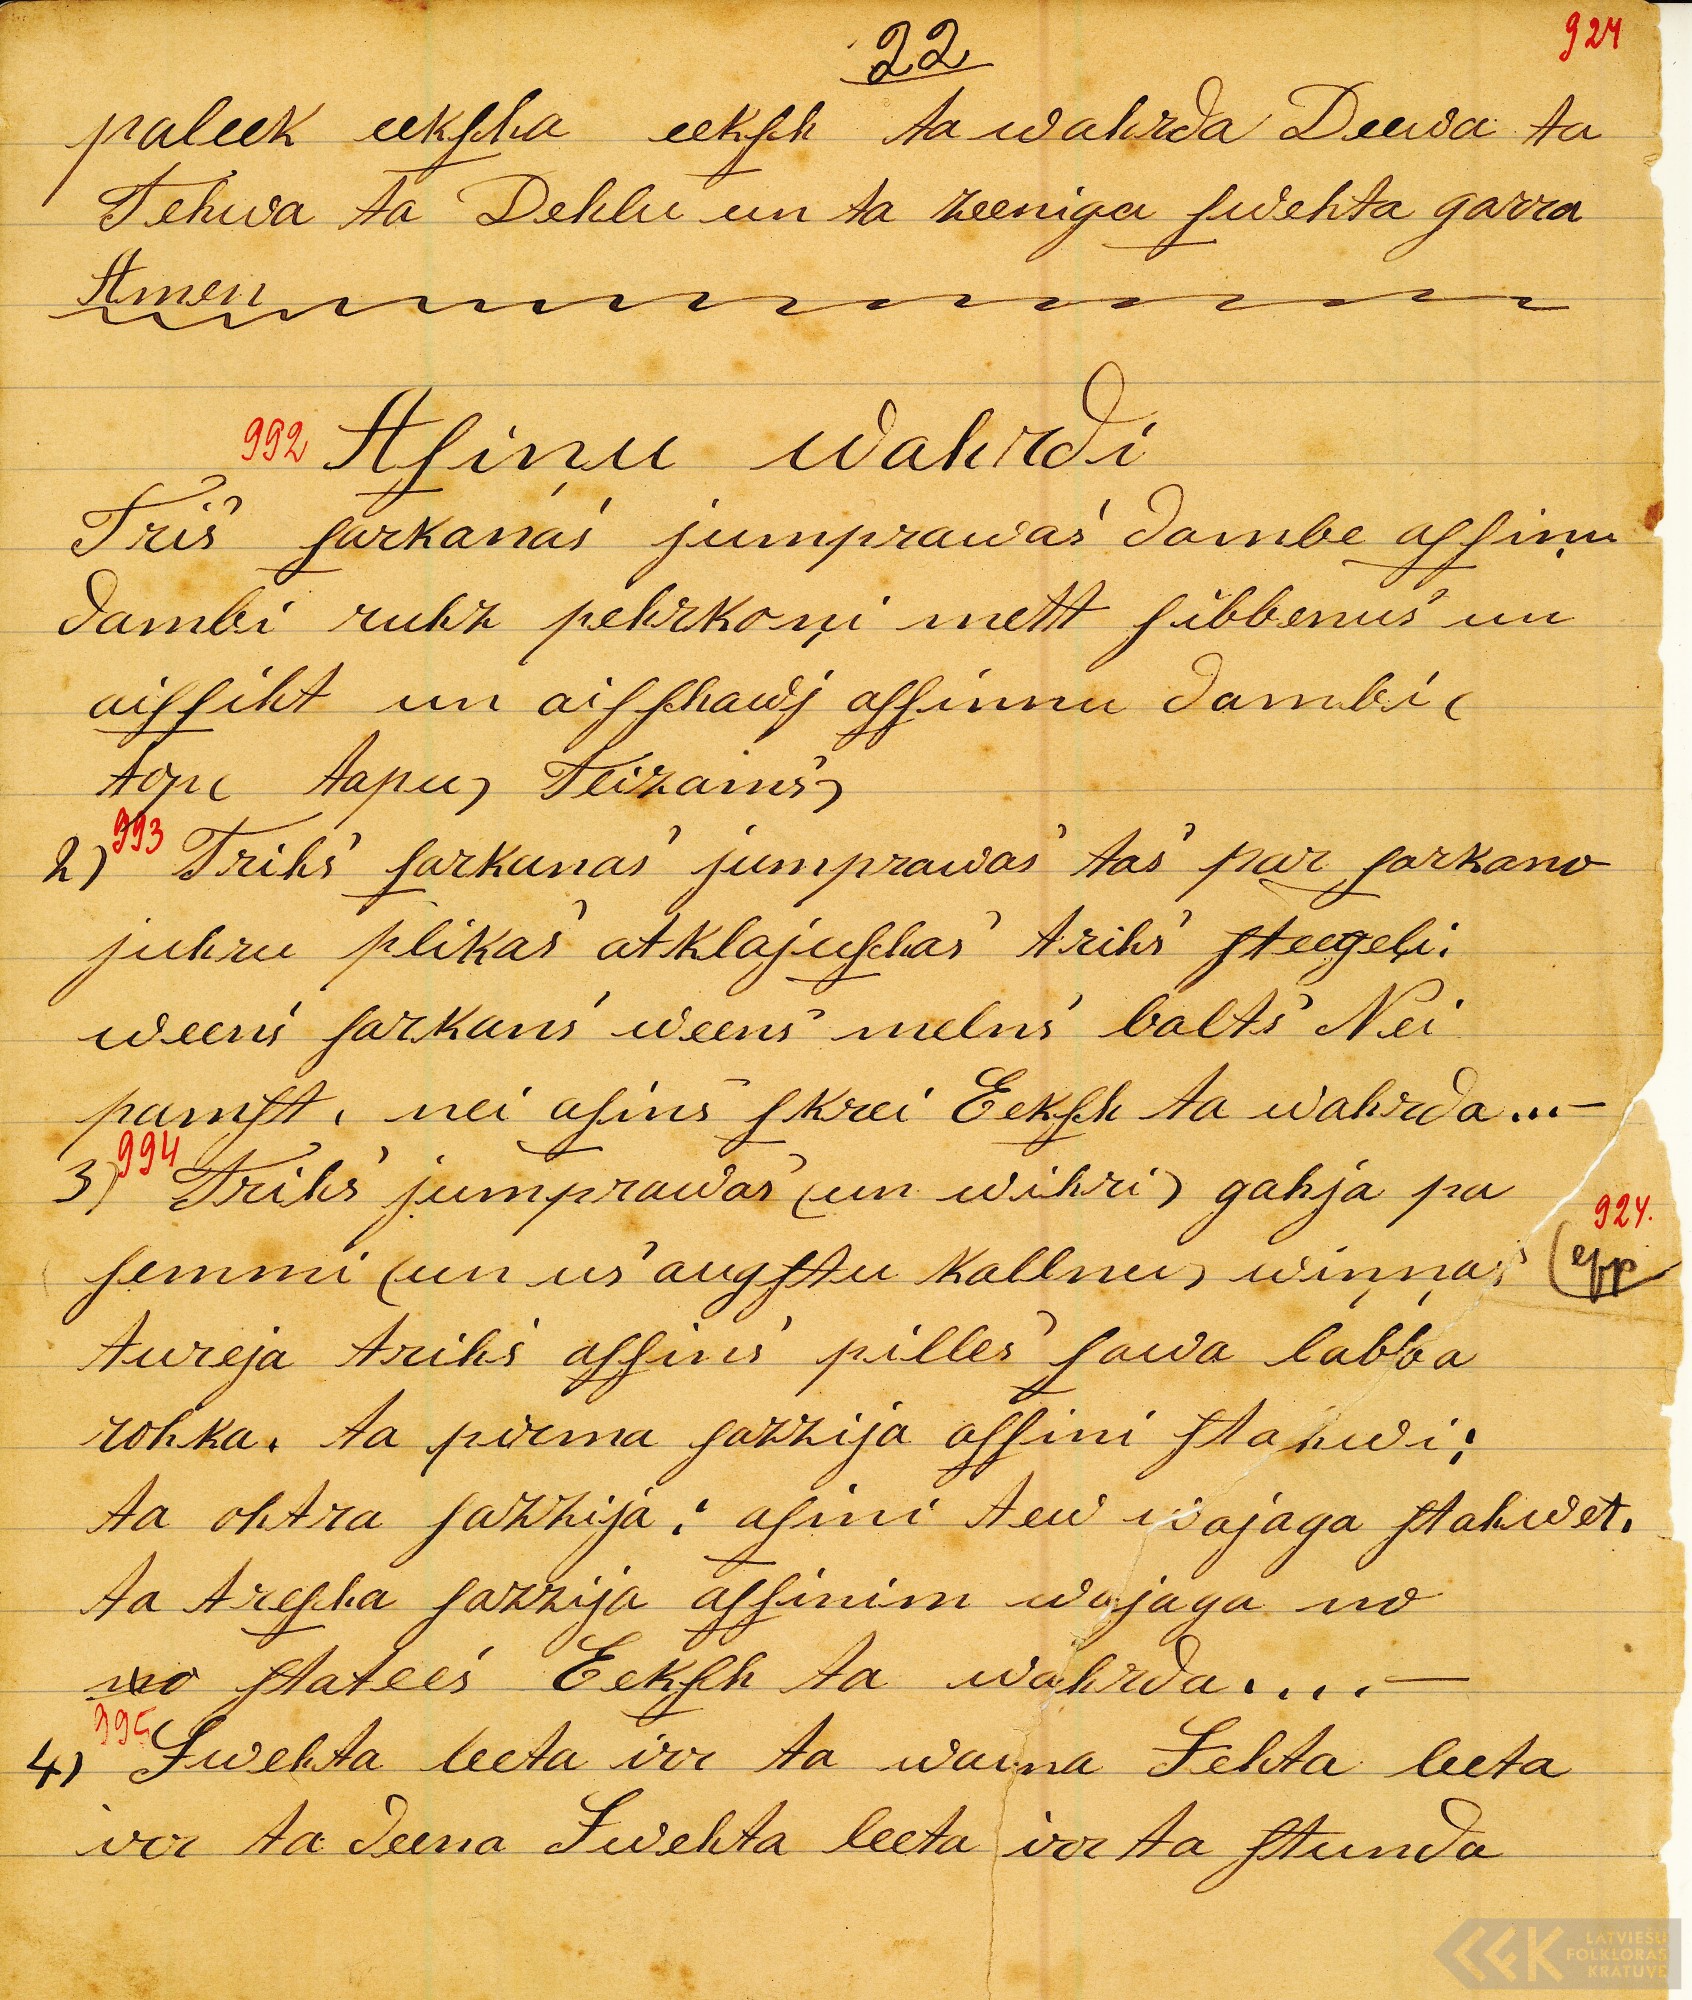 22
924
paleek eekſcha eekſch ta wahrda Deewa ta
Tehwa ta Dehlu un ta zeeniga ſwehta garra
Amen
992 Aſiņu wahrdi
Tris ſarkanas jumprawas dambe aſſiņu
dambi ruhz pehrkoņi mett ſibbenus un
aiſſiht un aiſſchawj aſſinnu dambi (
top( tapu) Teizams)
993
2) Trihs ſarkanas jumprawas tas par ſarkano
juhru plikas atklajuſchas trihs ſteegeļi.
weens ſarkans weens melns balts Nei
pamſt, nei aſins ſkrei Eekſch ta wahrda...—
994
3) Trihs jumprawas (un wihri) gahja pa
ſemmi (un us augſtu kallnu) wiņņas
924.
tureja trihs aſſins pilles ſawa labba
rohka. ta pirma ſazzija aſſini ſtahwi;
ta ohtra ſazzija: aſini tew wajaga ſtahwet.
ta treſcha ſazzija aſſinim wajaga no
no ſtatees Eekſch ta wahrda....—
995
4) Swehta leeta irr ta waina Sehta leeta
irr ta deena Swehta leeta irr ta ſtunda
LATVIEŠU
FOLKLORAS
KRĀTUVE